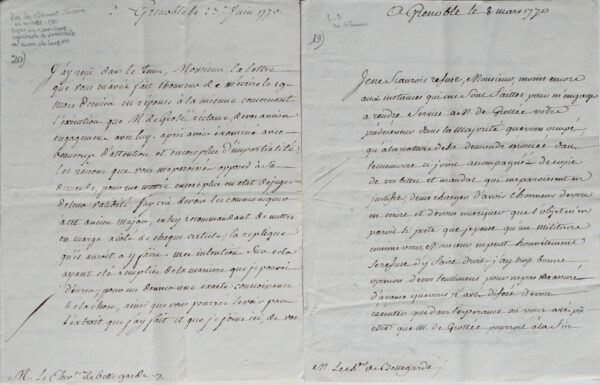 20)
a Grenoble 27 Juin 1770
J'ay reçu dans le tems, Monsieur, la lettre
que vous m'avez fait l'honneur de m'écrire le 19
Mars dernier en réponse à la mienne concernant
l'exécution que M. de Grolée réclame, de vos anciens
engagemens avec luy. après avoir examiné avec
beaucoup d'attention et encore plus d'impartialité
les raisons que vous me paroissés opposer à la
demande, pour me mettre encore plus en état de juger
de leur validité J'ay crû devoir les communiquer
à cet ancien Major, en luy recommandant de mettre
en marge à côté de chaque article, la replique
qu'il auroit à y faire. mon intention sur cela
ayant été remplie de la maniere que je pouvois
désirer, pour me donner une exacte connoissance
de la chose, ainsi que vous pourrez le voir par
l'extrait que j'ay fait et que je joins ici, de vos
M. Le Chev. de Bellegarde
19)
A Grenoble le 8 mars 1770
Je ne Scaurois refuser, Monsieur, moins encore
aux instances qui me sont faittes pour m'engager
a rendre Service a M. de Grollée votre
prédécesseur dans la Majorité que vous occupés,
qu'a la nature de sa demande énoncée dans
le memoire cy joint accompagné de copie
de vos billets et mandat qui me paroissent en
justifier, de me charger d'avoir l'honneur de vous
en écrire et de vous marquer que l'objet m'en
paroit si juste que je pense qu'un militaire
comme vous, Monsieur ne peut honnêtement
se refuser d'y faire droit. j'ay trop bonne
opinion de vos sentimens pour n'être pas assuré
d'avance que vous n'avés différé de vous
executer que dans l'esperance ou vous avés pû
être que M. de Grollée pourroit à la fin
M. Le Ch. de Bellegarde